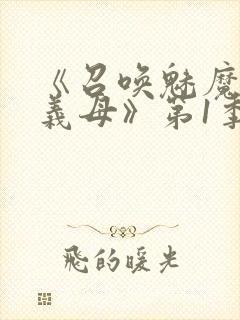 《召唤魅魔
義母》第1季
飛的暖光